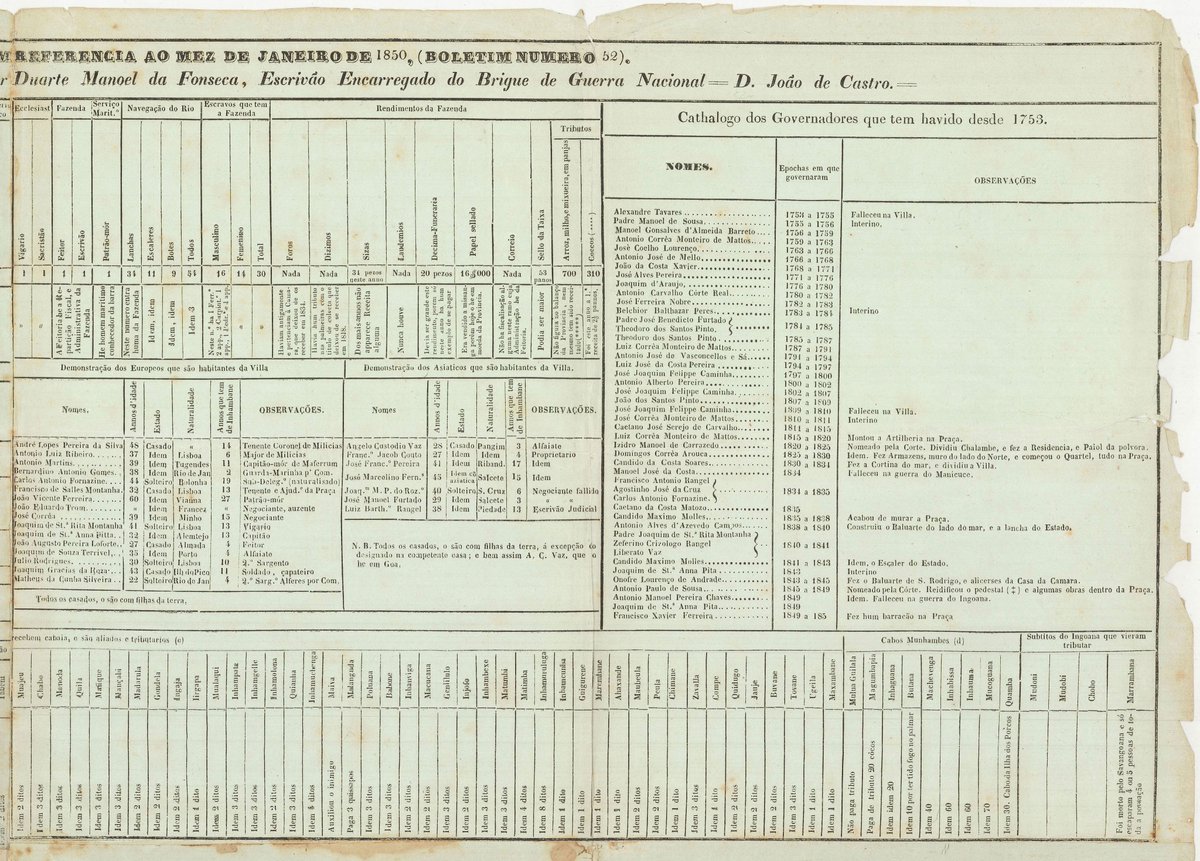 REFERENCIA AO MEZ DE JANEIRO DE 1850, (BOLETIM NUMERO 52).
Duarte Manoel da Fonseca, Escrivão Encarregado do Brigue de Guerra Nacional = D. João de Castro. =
Ecclesiast
Fazenda
Serviço Marit.º
Navegação do Rio
Escravos que tem a Fazenda
Rendimentos da Fazenda
Tributos
Vigario
Sacristão
Feitor
Escrivão
Patrão-mór
Lanchas
Escaleres
Botes
Todos
Masculino
Femenino
Total
Foros
Dizimos
Sizas
Laudemios
Decima-Funeraria
Papel sellado
Correio
Sello da Taixa
Arroz, milho, e mixueira, em panjas
Coccos (....)
1 1 1 1 1 34 11 9 54 16 14 30 Nada Nada 31 pezos neste anno Nada 20 pezos 16$000 Nada 53 panos 700 310
A Feitoria he a Repartição Fiscal, e Administrativa da Fazenda
He homem maritimo conhecedor da barra
Neste numero entra huma da Fazenda
Idem, idem
Idem, idem
Idem 3
Dos mais annos não apparece Receita alguma
Nunca houve
Podia ser maior
Demonstração dos Europeos que são habitantes da Villa
Nomes.
Annos d'idade
Estado
Naturalidade
Annos que tem de Inhambane
OBSERVAÇÕES.
André Lopes Pereira da Silva 48 Casado « 14 Tenente Coronel de Milicias
Antonio Luiz Ribeiro 37 Idem Lisboa 6 Major de Milicias
Antonio Martins 39 Idem Tugendes 11 Capitão-mór de Maferrum
Bernardino Antonio Gomes 38 Idem Rio de Jan 2 Guarda-Marinha pª Com.
Carlos Antonio Fornazine 44 Solteiro Bolonha 19 Sub-Deleg.º (naturalisado)
Francisco de Salles Montanha 32 Casado Lisboa 13 Tenente e Ajud.º da Praça
João Vicente Ferreira 60 Idem Vianna 27 Patrão-mór
João Eduardo Trom « Idem Francez « Negociante, auzente
José Corrêa 39 Idem Minho 15 Negociante
Joaquim de St.ª Rita Montanha 41 Solteiro Lisboa 13 Vigario
Joaquim de St.ª Anna Pitta 32 Idem Alemtejo 13 Capitão
João Augusto Pereira Loforte 27 Casado Almada 4 Feitor
Joaquim de Souza Terrivel 35 Idem Porto 4 Alfaiate
Julio Rodrigues 30 Solteiro Lisboa 10 2.º Sargento
Joaquim Gracias da Roza 43 Casado Ilh.do Pico 11 Soldado, çapateiro
Matheus da Cunha Silveira 22 Solteiro Rio de Jan 4 2.º Sarg.º Alferes por Com.
Todos os casados, o são com filhas da terra.
Demonstração dos Asiaticos que são habitantes da Villa.
Nomes
Annos d'idade
Estado
Naturalidade
Annos que tem de Inhambane
OBSERVAÇÕES.
Angelo Custodio Vaz 28 Casado Pangim 3 Alfaiate
Franc.º Jacob Couto 27 Idem Idem 4 Proprietario
José Franc.º Pereira 41 Idem Riband. 17 Idem
José Marcolino Fern.ˢ 45 Idem cõ asiatica Salcete 15 Idem
Joaq.ᵐ M. P. do Roz.º 40 Solteiro S. Cruz 6 Negociante fallido
José Manoel Furtado 29 Idem Salcete 3 « «
Luiz Barth.º Rangel 38 Idem Piedade 13 Escrivão Judicial
N. B. Todos os casados, o são com filhas da terra, á excepção do
designado na competente casa; e bem assim A. C. Vaz, que o
he em Goa.
Cathalogo dos Governadores que tem havido desde 1753.
NOMES.
Epochas em que governaram
OBSERVAÇÕES
Alexandre Tavares 1753 a 1755 Falleceu na Villa.
Padre Manoel de Sousa 1755 a 1756 Interino.
Manoel Gonsalves d'Almeida Barreto 1756 a 1759
Antonio Corrêa Monteiro de Mattos 1759 a 1763
José Coelho Lourenço 1763 a 1766
Antonio José de Mello 1766 a 1768
João da Costa Xavier 1768 a 1771
José Alves Pereira 1771 a 1776
Joaquim d'Araujo, 1776 a 1780
Antonio Carvalho Côrte Real 1780 a 1782
José Ferreira Nobre 1782 a 1783
Belchior Balthazar Peres 1783 a 1784 Interino
Padre José Benedicto Furtado
Theodoro dos Santos Pinto. 1784 a 1785
Theodoro dos Santos Pinto 1785 a 1787
Luiz Corrêa Monteiro de Mattos 1787 a 1791
Antonio José de Vasconcellos e Sá 1791 a 1794
Luiz José da Costa Pereira 1794 a 1797
José Joaquim Felippe Caminha 1797 a 1800
Antonio Alberto Pereira 1800 a 1802
José Joaquim Felippe Caminha 1802 a 1807
João dos Santos Pinto 1807 a 1809
José Joaquim Felippe Caminha 1809 a 1810 Falleceu na Villa.
José Corrêa Monteiro de Mattos 1810 a 1811 Interino
Caetano José Serejo de Carvalho 1811 a 1815
Luiz Corrêa Monteiro de Mattos 1815 a 1820 Montou a Artilheria na Praça.
Izidro Manoel de Carrazedo 1820 a 1825 Nomeado pela Corte. Dividiu Chalambe, e fez a Residencia, e Paiol da polvora.
Domingos Corrêa Arouca 1825 a 1830 Idem. Fez Armazens, muro do lado do Norte, e começou o Quartel, tudo na Praça.
Candido da Costa Soares 1830 a 1834 Fez a Cortina do mar, e dividiu a Villa.
Manoel José da Costa 1834 Falleceu na guerra do Manicuce.
Francisco Antonio Rangel
Agostinho José da Cruz
Carlos Antonio Fornazine 1834 a 1835
Caetano da Costa Matozo 1835
Candido Maximo Molles 1835 a 1838 Acabou de murar a Praça.
Antonio Alves d'Azevedo Campos 1838 a 1840 Construiu o Baluarte do lado do mar, e a lancha do Estado.
Padre Joaquim de St.ª Rita Montanha
Zeferino Crizologo Rangel
Liberato Vaz 1840 a 1841
Candido Maximo Molles 1841 a 1843 Idem, o Escaler do Estado.
Joaquim de St.ª Anna Pita 1843 Interino
Onofre Lourenço de Andrade 1843 a 1845 Fez o Baluarte de S. Rodrigo, e alicerses da Casa da Camara.
Antonio Paulo de Sousa 1845 a 1849 Nomeado pela Côrte. Reidificou o pedestal (‡) e algumas obras dentro da Praça.
Antonio Manoel Pereira Chaves 1849 Idem. Falleceu na guerra do Ingoana.
Joaquim de St.ª Anna Pita 1849
Francisco Xavier Ferreira 1849 a 185 Fez hum barracão na Praça
recebem cabaia, e são aliados e tributarios (c)
Cabos Munhambes (d)
Subditos do Inguana que vieram tributar
Muajeu Idem 2 ditos
Chabo Idem 3 ditos
Maroda Idem 3 ditos
Quila Idem 2 ditos
Matique Idem 3 ditos
Mançabi Idem 3 ditos
Madavula Idem 2 ditos
Gondela Idem 2 ditos
Ingaja Idem 2 ditos
Ingapa Idem 4 dito
Mualaqui Idem 2 ditos
Inhampata Idem 3 ditos
Inhamgelle Idem 2 ditos
Inhamolona Idem 2 ditos
Quinanha Idem 3 ditos
Inhamuchenga Idem 4 ditos
Maixa Auxiliou o inimigo
Malangunda Paga 3 quissapos
Pobana Idem 3 ditos
Babone Idem 2 ditos
Inhanviga Idem 2 ditos
Macucuna Idem 2 ditos
Gemilulo Idem 2 ditos
Injojo Idem 2 ditos
Inhambexe Idem 3 ditos
Matumbi Idem 2 ditos
Matimba Idem 4 ditos
Inhamoujuga Idem 3 ditos
Inhamcumba Idem 4 dito
Guigurene Idem 4 ditos
Marembane Idem 1 dito
Ahaxande Idem 1 dito
Maubeula Idem 2 ditos
Peula Idem 2 ditos
Chimane Idem 2 ditos
Zavalla Idem 3 ditos
Compe Idem 4 dito
Quidugo Idem 2 ditos
Janje Idem 2 ditos
Buvane Idem 2 ditos
Tosane Idem 2 ditos
Ugeila Idem 1 dito
Maxambane Idem 4 dito
Muina Guilala Não paga tributo
Magumbapia Paga de tributo 20 côcos
Inhaguana Idem idem 20
Butana Idem 10 por ter tido fogo no palmar
Machevenga Idem 40
Inhabissa Idem 60
Inhauma Idem 60
Mucoguana Idem 70
Quamba Idem 30. Cabo da Ilha dos Porcos
Mudoni
Mudobi
Chobo
Marrambuana Foi morto pelo Savangoana e só escaparam 4 ou 5 pessoas de toda a povoação